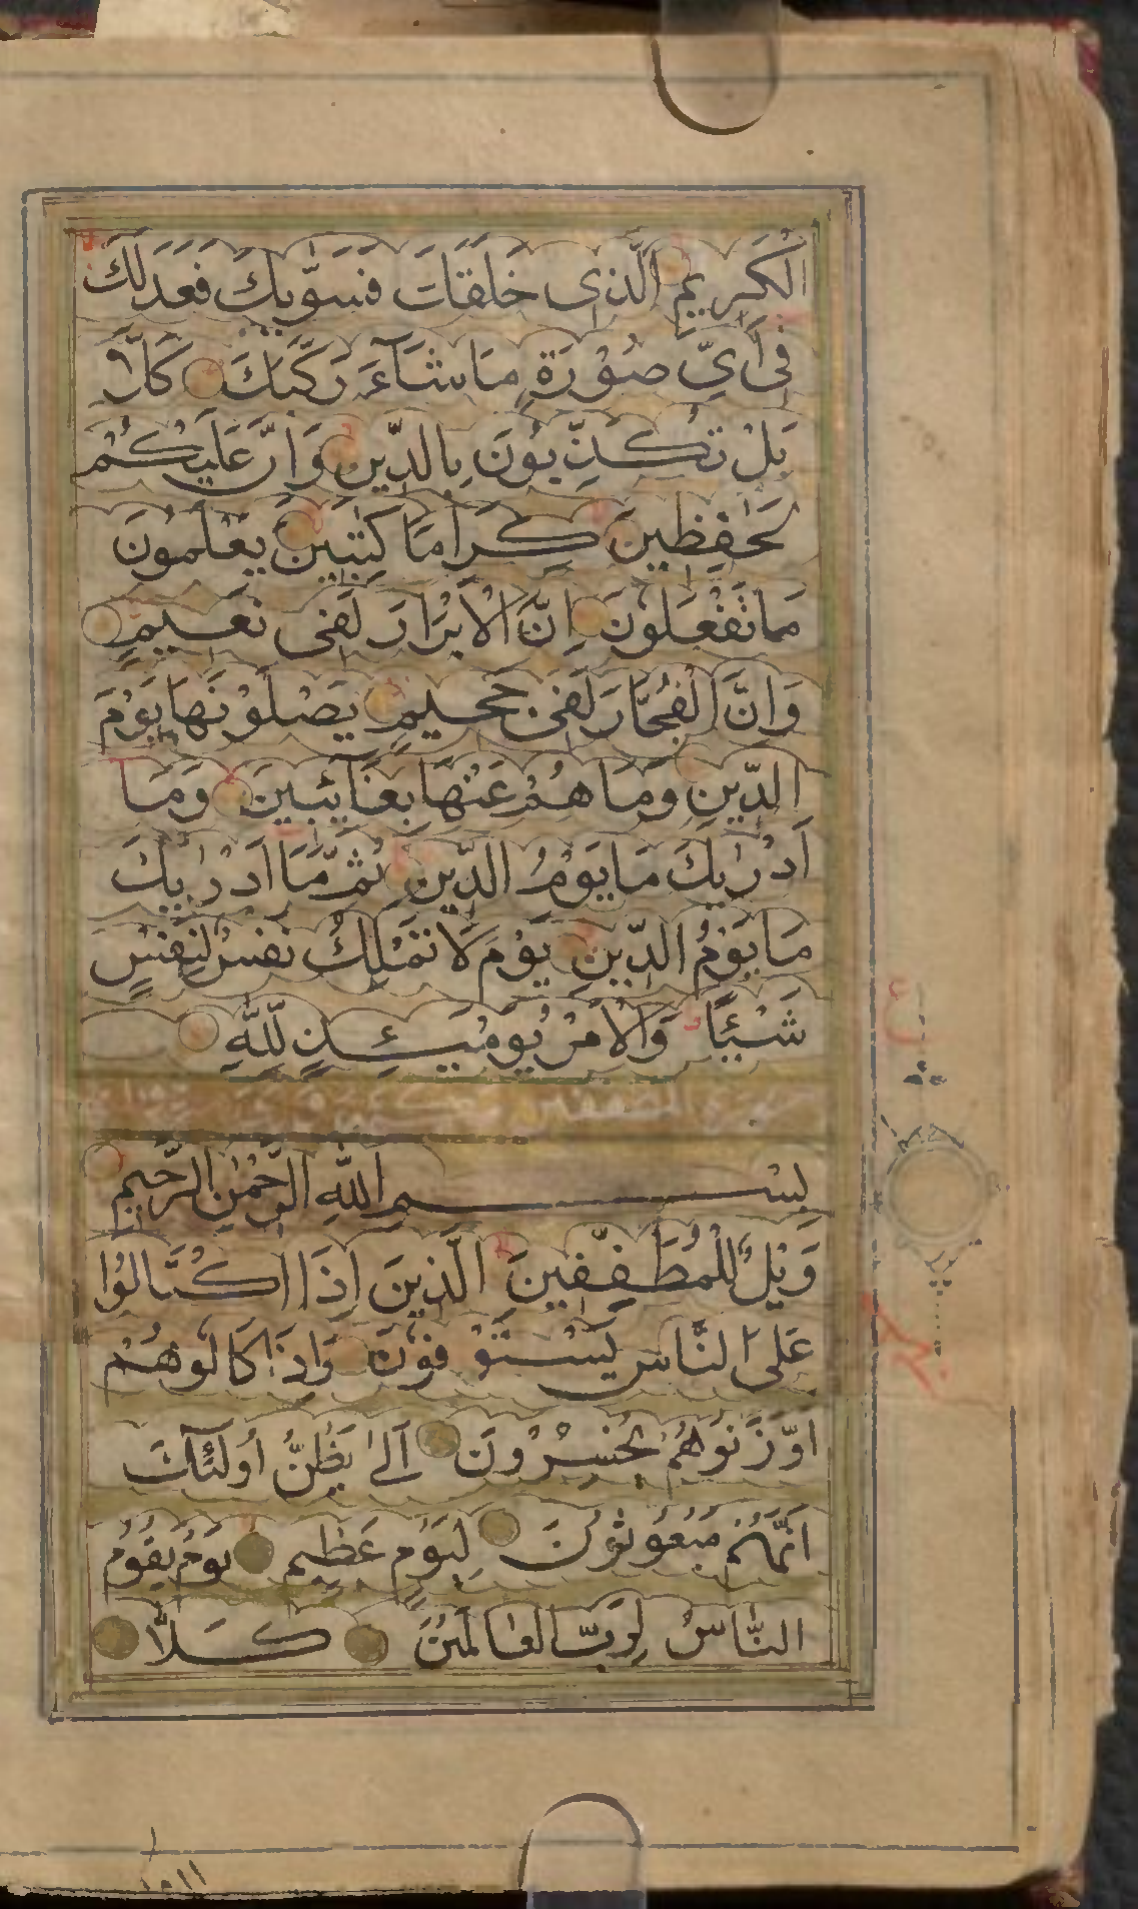 الْكَرِيمِ الَّذِى خَلَقَكَ فَسَوّٰيكَ فَعَدَلَكَ
فِى اَيِّ صُوْرَةٍ مَا شَآءَ رَكَّبَكَ كَلَّا
بَلْ تُكَذِّبُونَ بِالدِّينِ وَاِنَّ عَلَيْكُمْ
لَحٰفِظِينَ كِرَامًا كَاتِبِينَ يَعْلَمُونَ
مَا تَفْعَلُونَ اِنَّ الْاَبْرَارَ لَفِى نَعِيمٍ
وَاِنَّ الْفُجَّارَ لَفِى جَحِيمٍ يَصْلَوْنَهَا يَوْمَ
الدِّينِ وَمَا هُمْ عَنْهَا بِغَآئِبِينَ وَمَا
اَدْرٰيكَ مَا يَوْمُ الدِّينِ ثُمَّ مَا اَدْرٰيكَ
مَا يَوْمُ الدِّينِ يَوْمَ لَا تَمْلِكُ نَفْسٌ لِنَفْسٍ
شَيْئًا وَالْاَمْرُ يَوْمَئِذٍ لِلّٰهِ
المطففين
بِسْمِ اللّٰهِ الرَّحْمٰنِ الرَّحِيمِ
وَيْلٌ لِلْمُطَفِّفِينَ الَّذِينَ اِذَا اكْتَالُوْا
عَلَى النَّاسِ يَسْتَوْفُونَ وَاِذَا كَالُوهُمْ
اَوْ وَزَنُوهُمْ يُخْسِرُونَ اَلَا يَظُنُّ اُولٰئِكَ
اَنَّهُمْ مَبْعُوثُونَ لِيَوْمٍ عَظِيمٍ يَوْمَ يَقُومُ
النَّاسُ لِرَبِّ الْعَالَمِينَ كَلَّا
ع